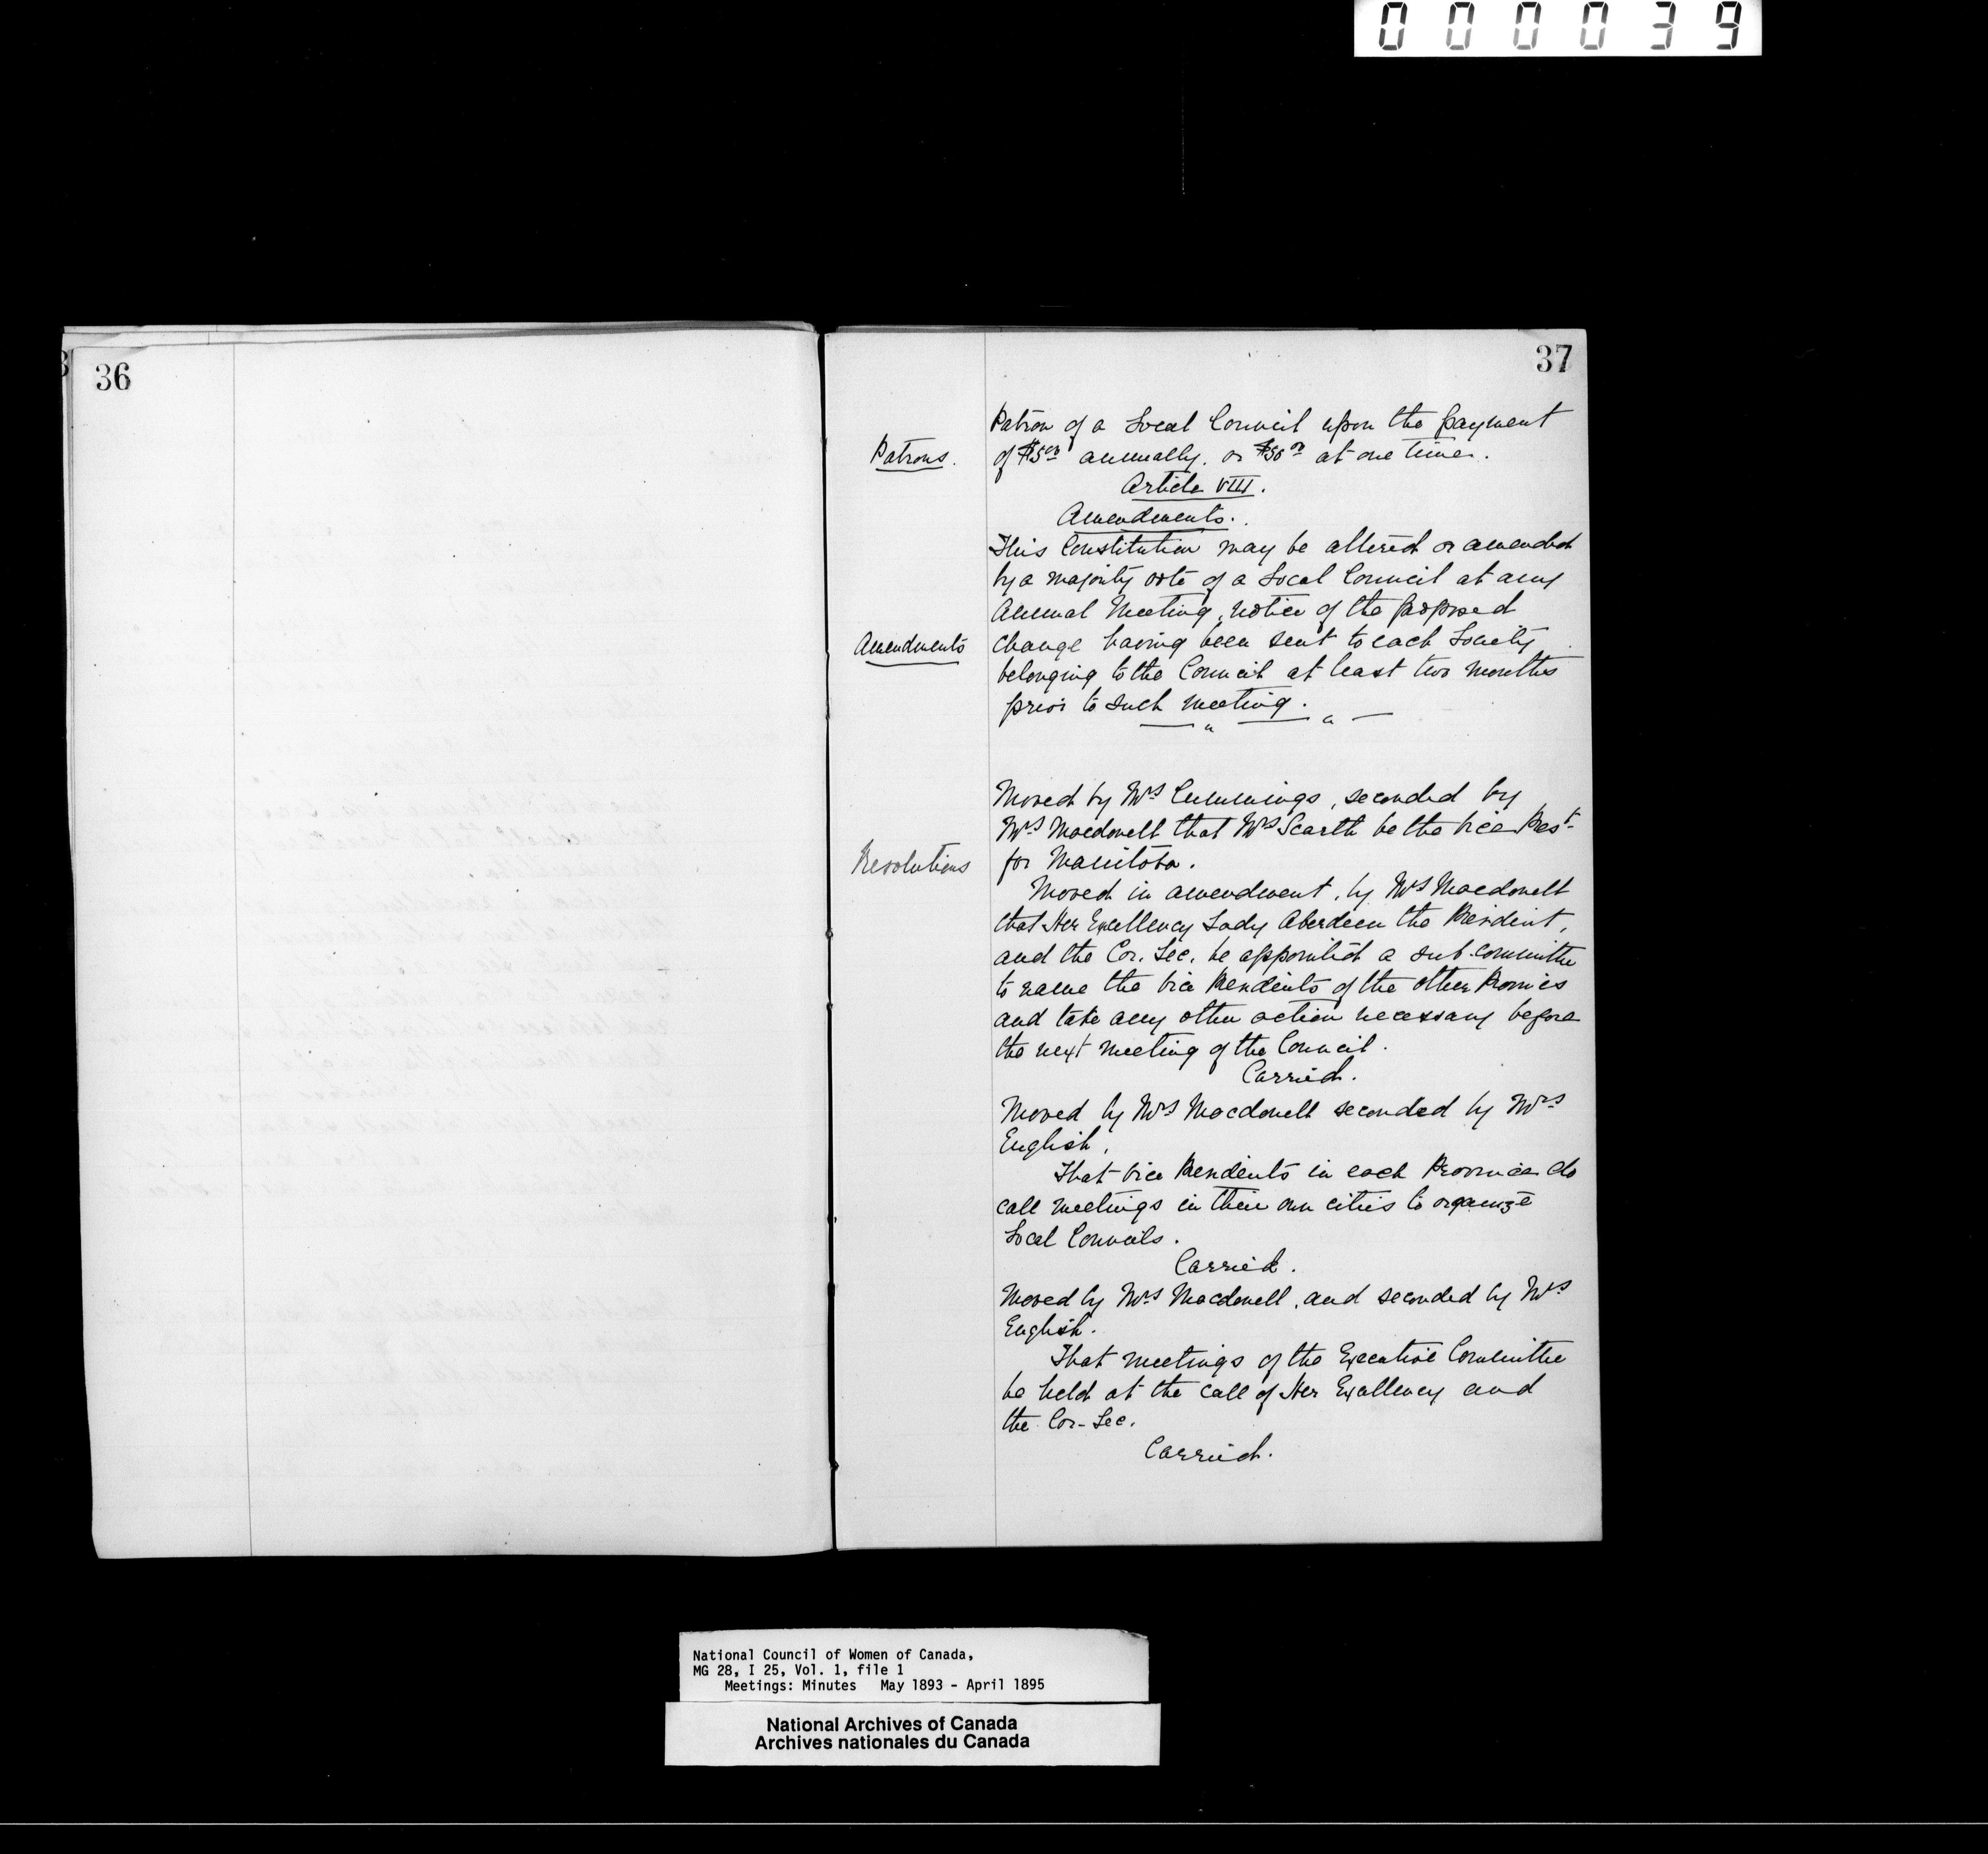 000039
36
37
Patron of a Local Council upon the payment
Patrons.
of $5.00 annually. or $50.00 at one time.
Article VIII.
Amendments.
This Constitution may be altered or amended
by a majority vote of a Local Council at any
Annual Meeting, notice of the proposed
Amendments
change having been sent to each Society
belonging to the Council at least two months
prior to such meeting.
Moved by Mrs Cummings, seconded by
Mrs Macdonell that Mrs Scarth be the Vice Prest.
Resolutions
for Manitoba.
Moved in amendment, by Mrs Macdonell
that Her Excellency Lady Aberdeen the President,
and the Cor. Sec. be appointed a sub-committee
to name the Vice Presidents of the other Provinces
and take any other action necessary before
the next meeting of the Council.
Carried.
Moved by Mrs Macdonell seconded by Mrs
English,
That Vice Presidents in each Province do
call meetings in their own cities to organize
Local Councils.
Carried.
Moved by Mrs Macdonell, and seconded by Mrs
English.
That meetings of the Executive Committee
be held at the call of Her Excellency and
the Cor-Sec.
Carried.
National Council of Women of Canada,
MG 28, I 25, Vol. 1, file 1
Meetings: Minutes May 1893 - April 1895
National Archives of Canada
Archives nationales du Canada